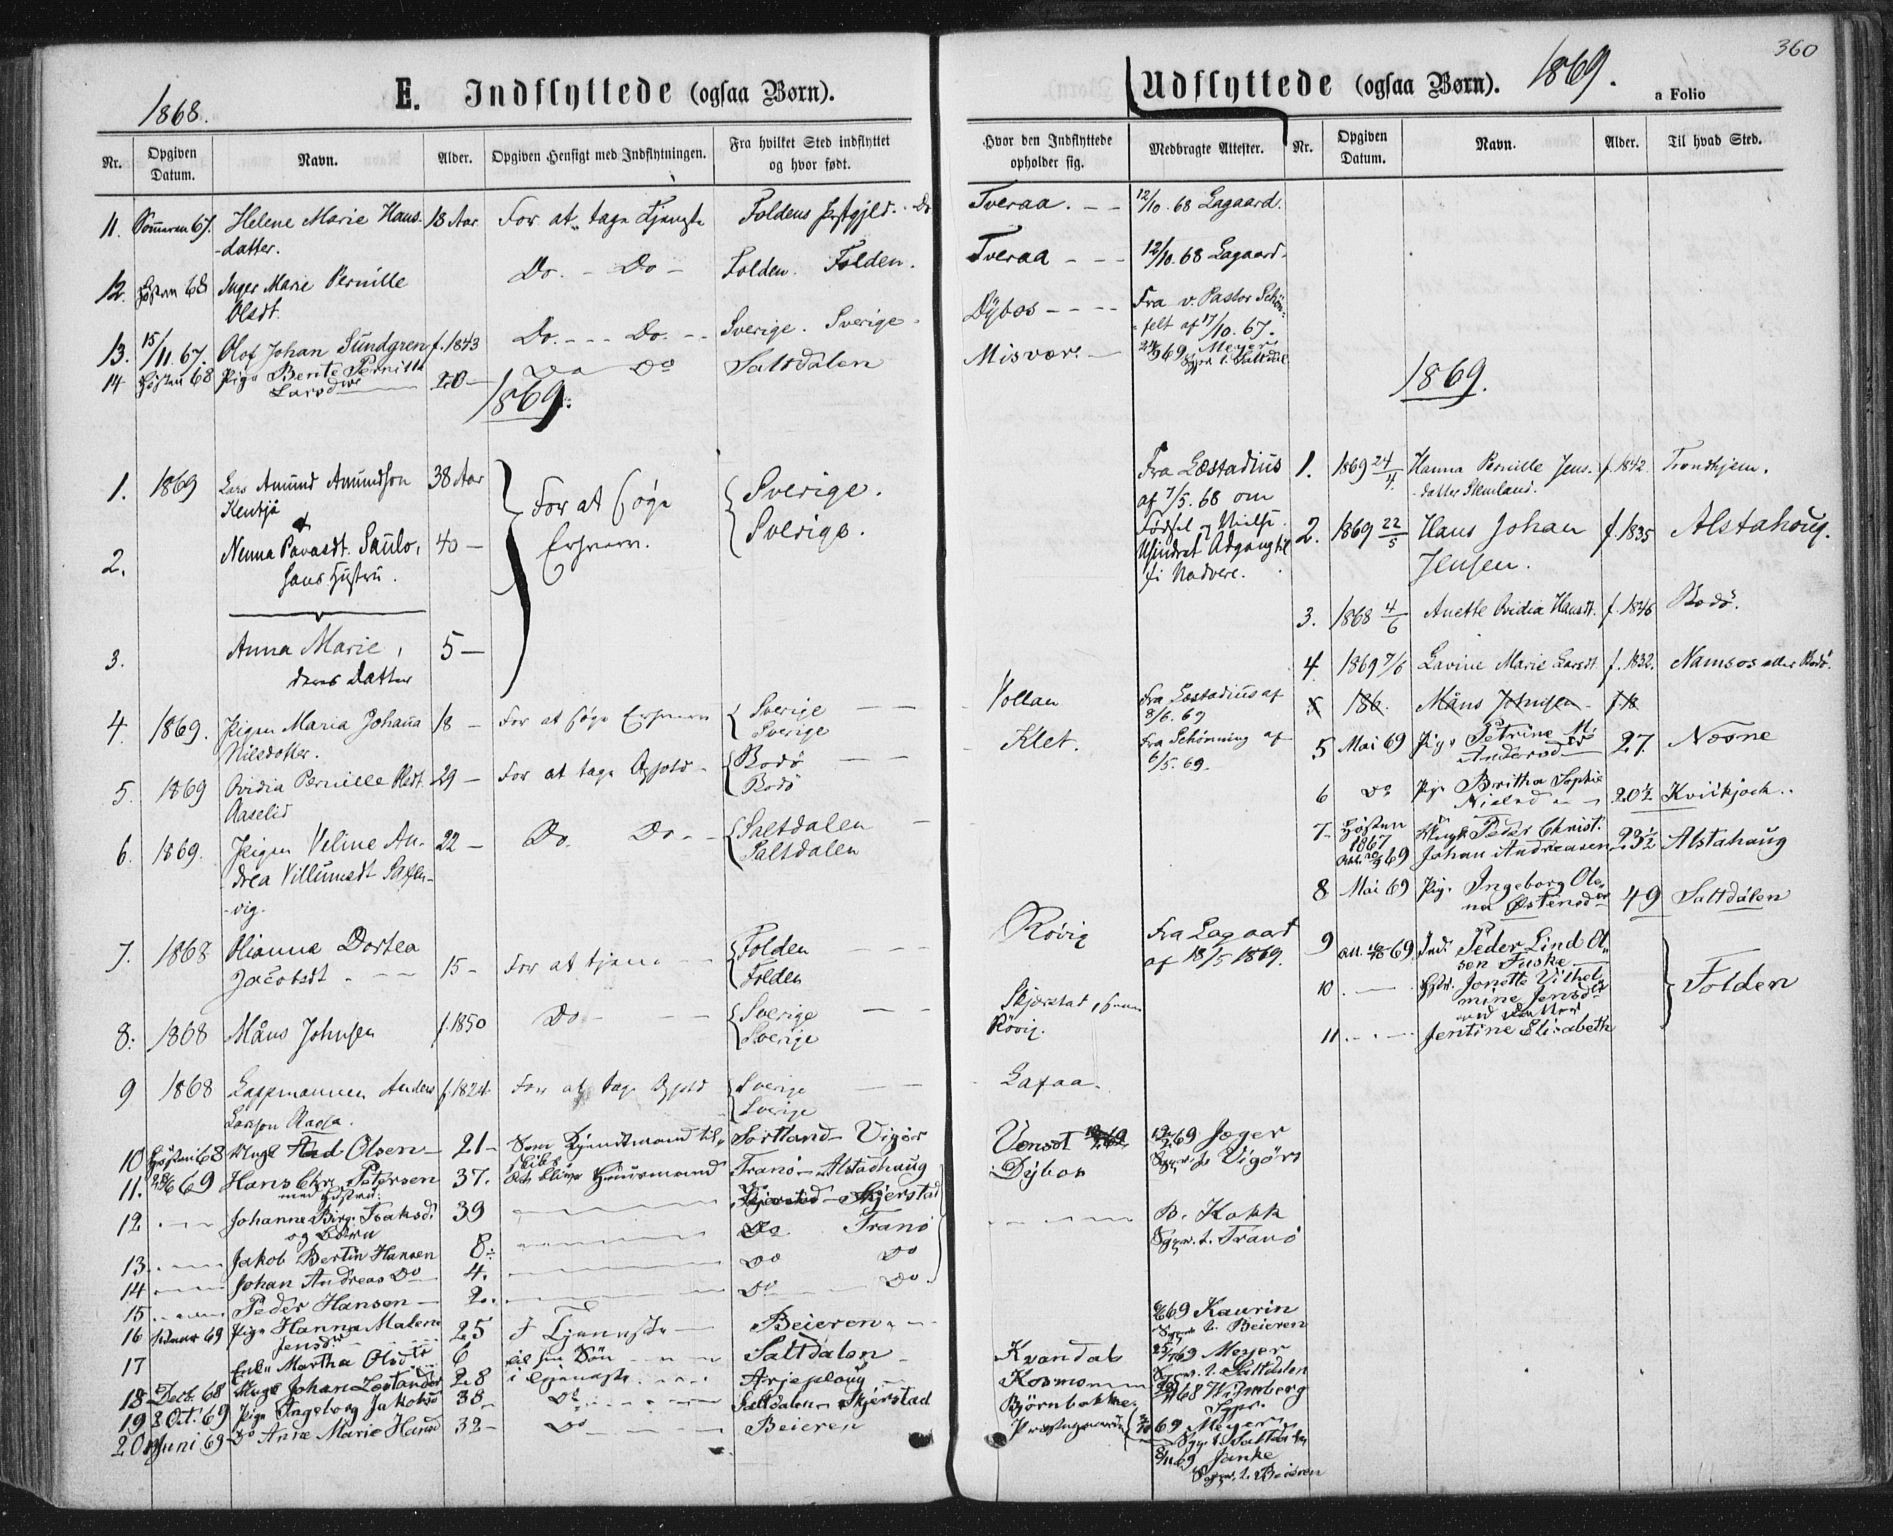 360
1868.
E. Indflyttede (ogsaa Børn).
Udflyttede (ogsaa Børn). 1869.
a Folio
Nr. Opgiven Datum. Navn. Alder. Opgiven Hensigt med Indflytningen. Fra hvilket Sted indflyttet og hvor født.
Hvor den Indflyttede opholder sig. Medbragte Attester. Nr. Opgiven Datum. Navn. Alder. Til hvad Sted.
11. Sommeren 67. Helene Marie Hans- 18 Aar For at tage Tjeneste Foldens Præstgjeld. Do Tveraa. 12/10 68 Lagaard.
datter.
12. Høsten 68 Inger Marie Pernille Do. Do Folden. Folden. Tveraa 12/10 68 Lagaard.
Olsdt.
13. 15/11 67. Olof Johan Sundgren f. 1843 Do. Do. Sverige. Sverige. Dybos Fra v. Pastor Schøn-
felt af 17/10. 67.
14 Høsten 68 Pige Berite Pernille 20 Do Do Saltdalen Misvær. 69 Meyer
Larsd Sgpr t. Saltdal
1869.
1869.
1. 1869 Lars Amund Amundson 38 Aar For at søge Sverige. Fra Læstadius
Kentjá af 7/5. 68 om
2. Nenna Pavasdt. Saulo, 40 Erhverv. Sverige. Fødsel og Vielse.
hans Hustru. Uhindret Adgang til
Nadvere.
3. Anna Marie, 5
deres Datter
4. 1869. Pigen Maria Johana 18 For at søge Erhverv Sverige Vollan Fra Læstadius af
Nilsdotter. Sverige 8/6. 69
5. 1869 Ovidia Pernille Olsdt. 29 For at tage Ophold Bodø Klet. Fra Schönning af
Aaselid Bodø 6/5. 69.
6. 1869. Pigen Veline An- 22 Do. Do Saltdalen
drea Villumsdt Saxen- Saltdalen
vig.
7. 1868 Olianna Dortea 15 For at tjene Folden Røvig Fra Lagaard
Jacobsdt Folden af 18/5 1869.
8. 1868 Måns Johnsen f. 1850 Do Sverige Skjerstad,
Sverige Røvig.
9 1868 Lappmannen Anders f. 1824. For at tage Ophold Sverige Lafaa.
Larsson Sverige
10 Høsten 68 Ungk Olsen 21 Som Tjenstmand til Sortland Vigør Venset 69 Jæger
11. 69 Hans Chr. Petersen 37. Husmand Tranø Alstadhaug Dybos Sgpr. t. Vigørs
med Hustru:
12 Johanne Birg. Isaksd. 39 Skjerstad B. Kokk
og Børn Sgpr. t. Tranø
13. Jakob Bertin Hansen 8 Do Tranø
14 Johan Andreas Do 4. Do Do
15 Peder Hansen 2. Do Do
16 69 Pige Hanna Malene 25 I Tjeneste Beieren 69 Kaurin
Jensd Sgpr t. Beieren
17 Enke Martha Olsd 6 til sin Søn Saltdalen Kvandal 69 Meyer
Sgpr. t. Saltdalen
18 Decb. 68 Ungk Johan 28 i Tjeneste Arjeploug 68
19 8 Oct. 69 Pige Ingeborg Jakobsd 38 Do Saltdalen Skjerstad Björnbakken 69 Meyer
Sgpr. t. Saltdalen
20 Juni 69 Do Anne Marie Hansd 32 Do Beieren 69 Janke
Sgpr. t. Beieren
1. 1869 24/4 Hanna Pernille Jens- f. 1842. Trondhjem.
datter
2. 1869 22/5 Hans Johan f. 1835 Alstahoug.
Jensen.
3. 1868 4/6 Anette Ovidia Hansdt. f. 1846 Bodø.
4. 1869 7/6 Lavine Marie Larsdt f. 1832. Namsos eller Bodø.
186. Måns Johnsen f. 18
5 Mai 69 Pige Petrine M. 27 Nesne
Andersd
6 Do Pige Britha Sophie 20½ Kvikjock.
Nielsd
7 Høsten 1867 Ungk Peder Christ. 23½ Alstahaug
69 Johan Andreasen
8 Mai 69 Pige Ingeborg Ole- 49 Saltdalen
na Østensd
9 69 Ind. Peder Lind Ol- Folden
sen Fuske
10 Hstr. Jonette Vilhel-
mine Jensd
med Datter
11 Jentine Elisabeth